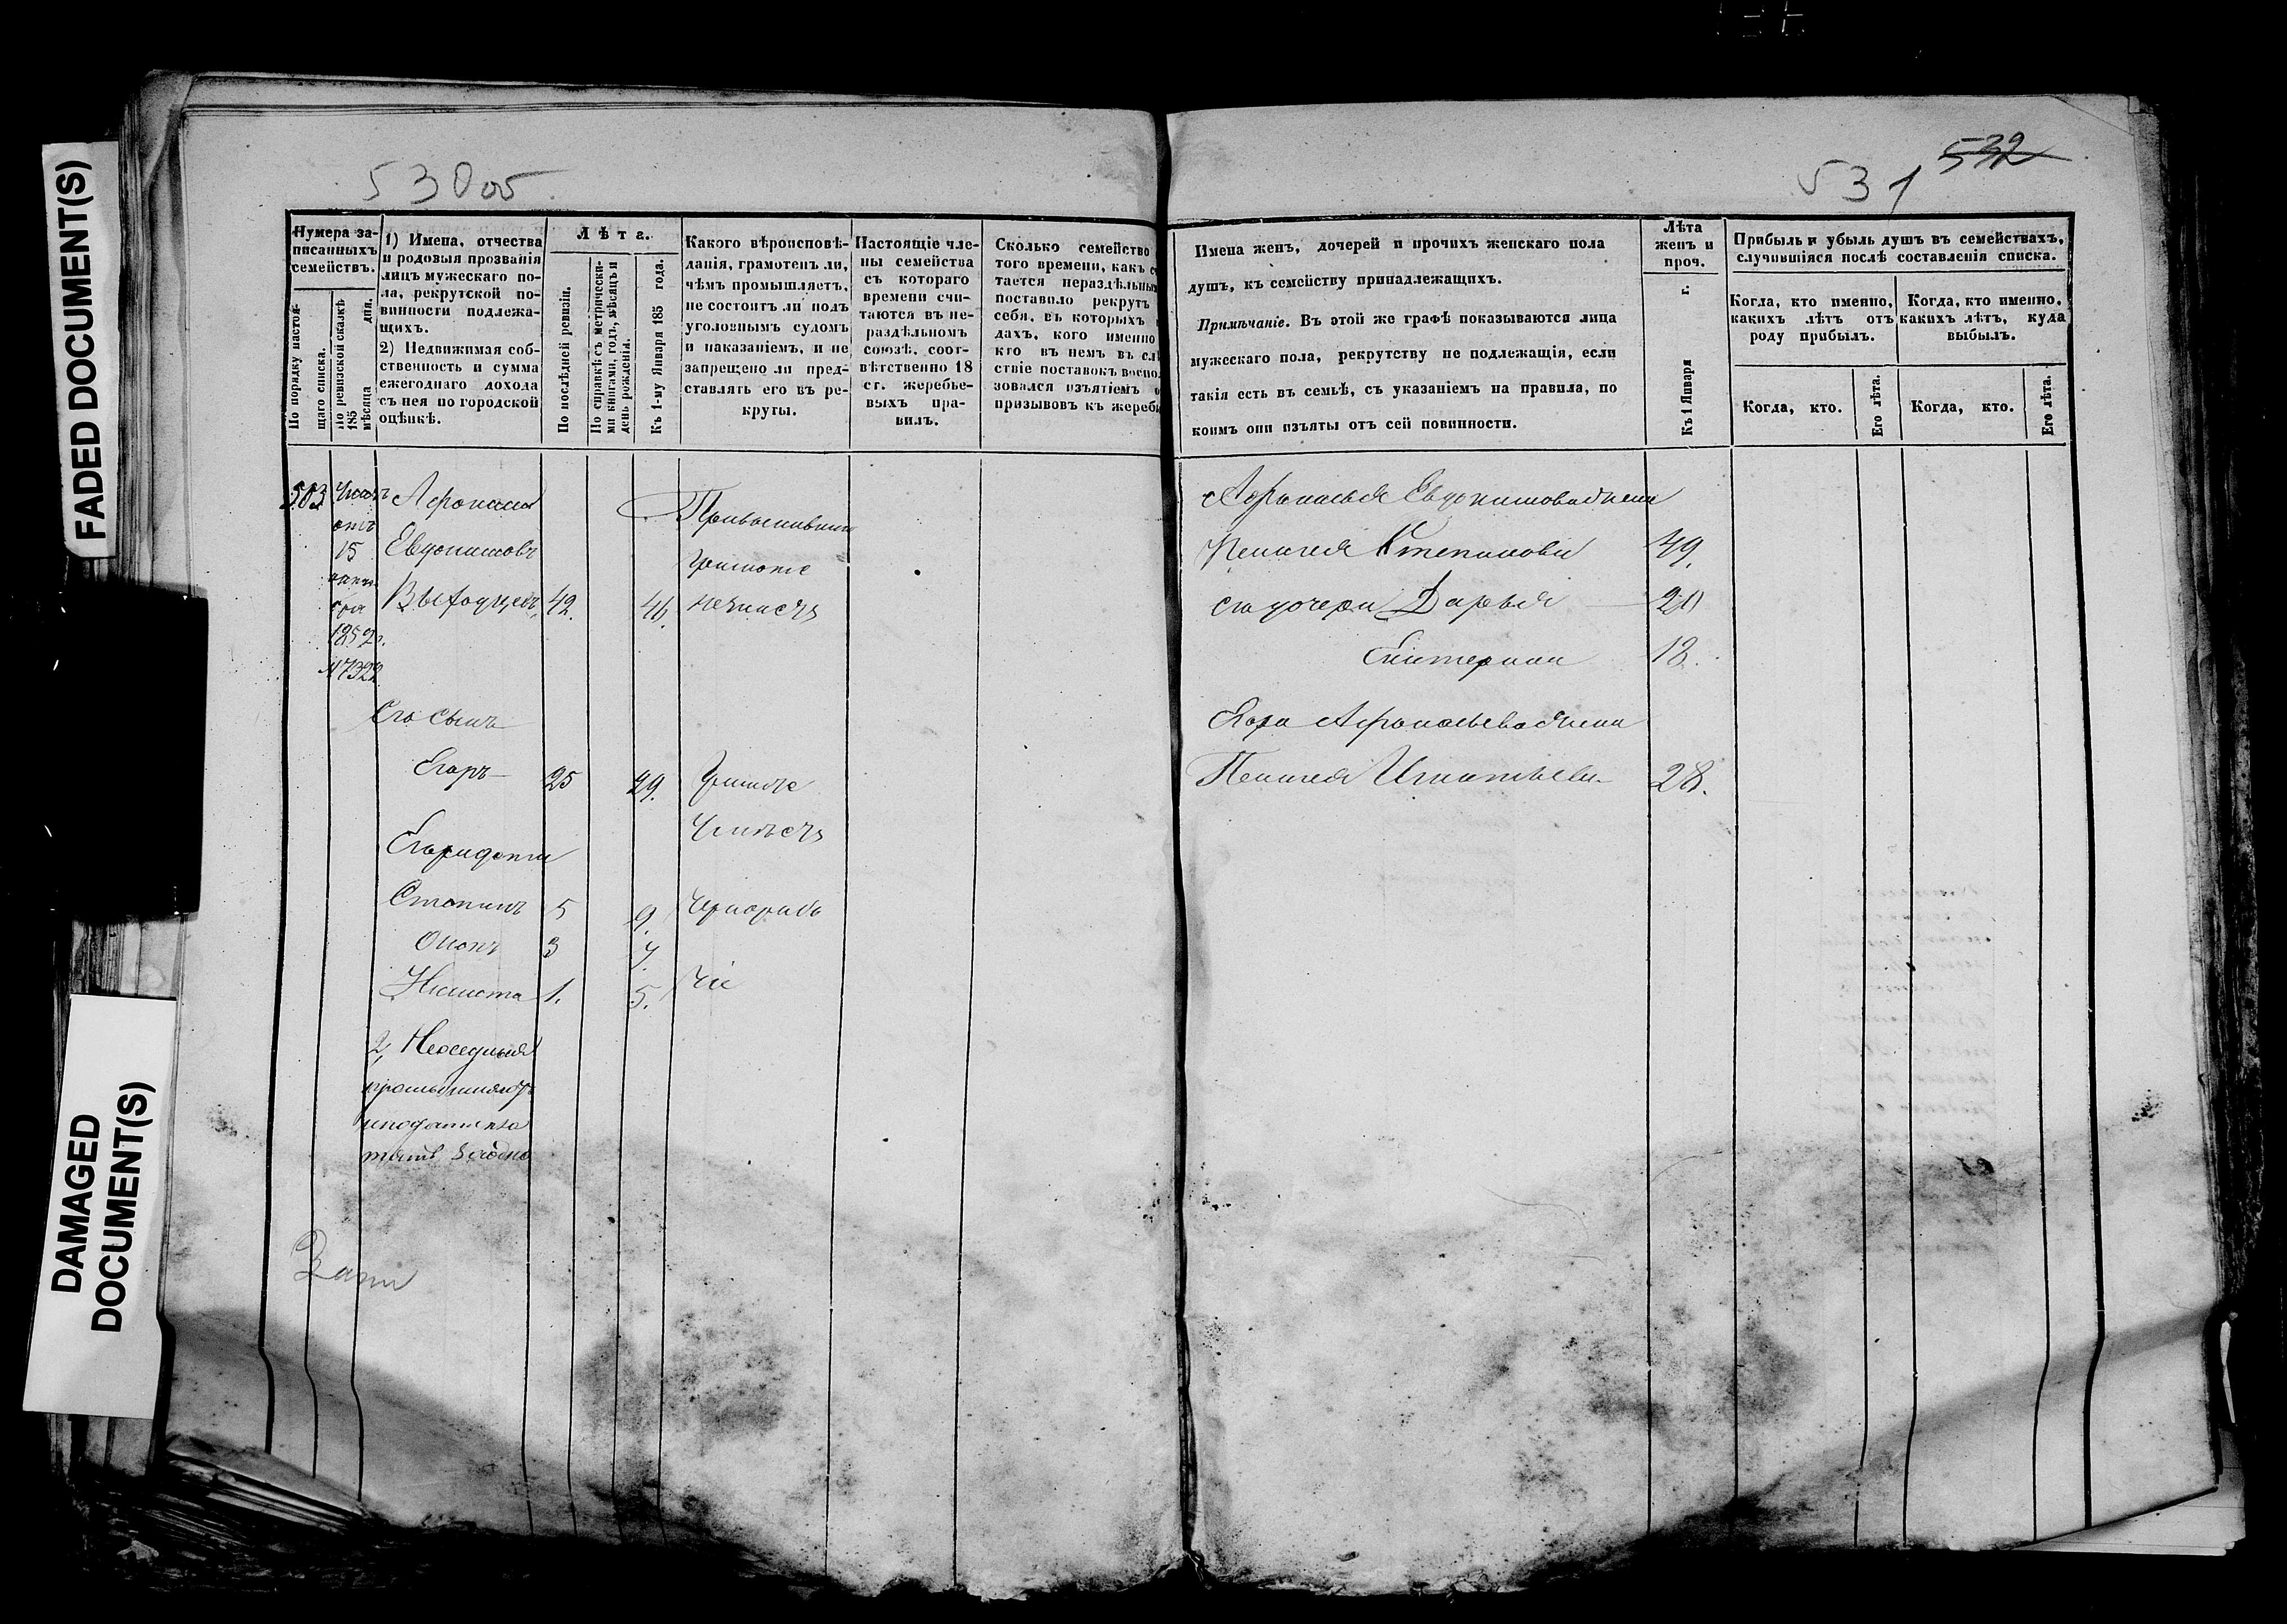 FADED DOCUMENT(S)
DAMAGED
DOCUMENT(S)
530 об
Нумера за-
писанныхъ
семействъ.
По порядку настоя-
щаго списка.
По ревизской сказкѣ
185 дня.
мѣсяца
1) Имена, отчества
и родовыя прозванія
лицъ мужескаго по-
ла, рекрутской по-
винности подлежа-
щихъ.
2) Недвижимая соб-
ственность и сумма
ежегоднаго дохода
съ нея по городской
оцѣнкѣ.
Лѣта.
По послѣдней ревизіи.
По справкѣ съ метрически-
ми книгами, годъ, мѣсяцъ и
день рожденія.
Къ 1-му Января 185 года.
Какого вѣроисповѣ-
данія, грамотенъ ли,
чѣмъ промышляетъ,
не состоитъ ли подъ
уголовнымъ судомъ
и наказаніемъ, и не
запрещено ли пред-
ставлять его въ ре-
круты.
Настоящіе чле-
ны семейства
съ котораго
времени счи-
таются въ не-
раздѣльномъ
союзѣ, соот-
вѣтственно 18
ст. жеребье-
выхъ пра-
вилъ.
Сколько семейство
того времени, какъ
тается нераздѣльны
поставило рекрутъ
себя, въ которыхъ
дахъ, кого именно
кто въ немъ въ слѣ
ствіе поставокъ воспо
зовался изъятіемъ
призывовъ къ жереб
503
15
1852г.
№7322
Афонасій
Евдокимовъ
Выходцевъ 42. 46.
Православнаго
грамоте
незнаетъ
Его сынъ
Егоръ 25 29. Грамоте
Знаетъ
Егора дети
Степанъ 5 9.
Осипъ 3 7.
Никита 1. 5.
2,
531
532
Имена женъ, дочерей и прочихъ женскаго пола
душъ, къ семейству принадлежащихъ.
Примѣчаніе. Въ этой же графѣ показываются лица
мужескаго пола, рекрутству не подлежащія, если
такія есть въ семьѣ, съ указаніемъ на правила, по
коимъ они изъяты отъ сей повинности.
Лѣта
женъ и
проч.
Къ 1 Января г.
Прибыль и убыль душъ въ семействахъ,
случившіяся послѣ составленія списка.
Когда, кто именно,
какихъ лѣтъ отъ
роду прибылъ.
Когда, кто именно,
какихъ лѣтъ, куда
выбылъ.
Когда, кто.
Его лѣта.
Когда, кто.
Его лѣта.
Афонасья Евдокимова жена
Степанова 49.
его дочери Дарья 20
Екатерина 18.
Егора Афонасьева жена
Пелагея Игнатьева 28.